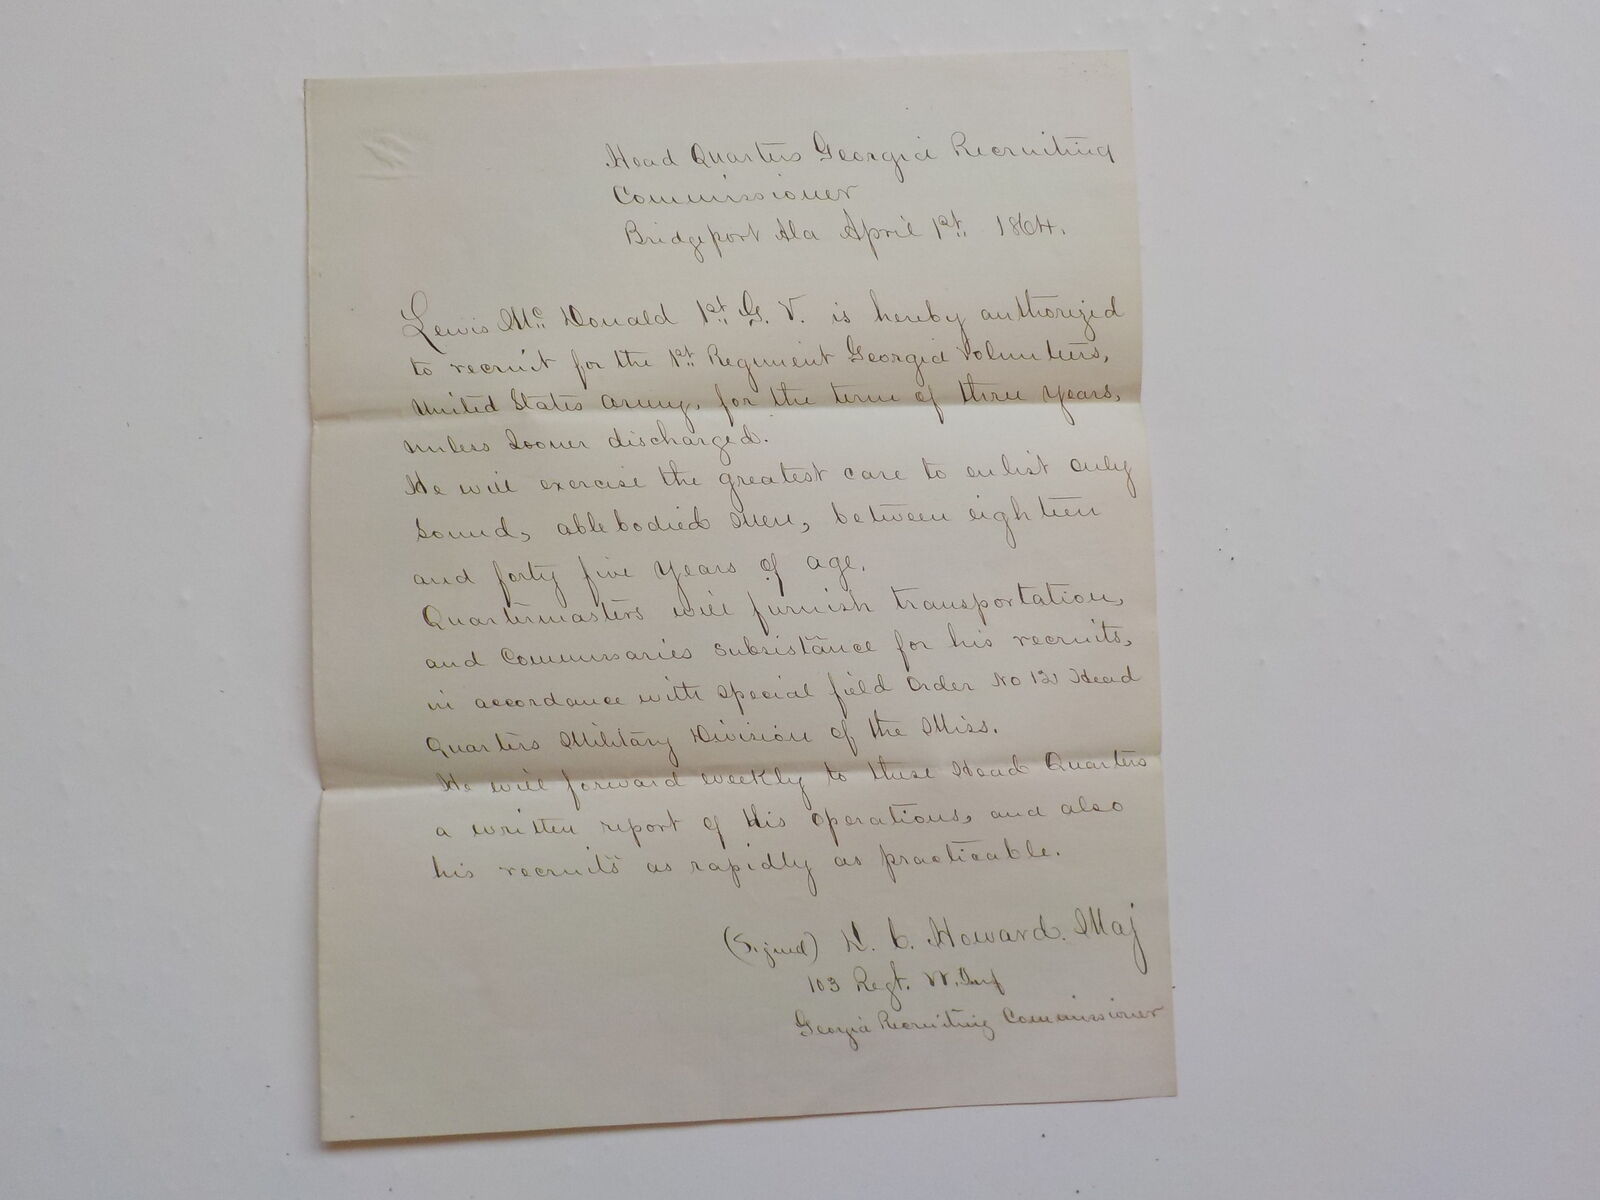 Head Quarters Georgia Recruiting
Commissioner
Bridgeport Ala April 1st. 1864.
Lewis Mc. Donald 1st. G. V. is hereby authorized
to recruit for the 1st. Regiment Georgia Volunteers,
United States Army, for the term of three years,
unless sooner discharged.
He will exercise the greatest care to enlist only
sound, able bodied Men, between eighteen
and forty five years of age.
Quartermasters will furnish transportation,
and Commissaries subsistance for his recruits,
in accordance with special field Order No Head
Quarters Military Division of the Miss.
He will forward weekly to these Head Quarters
a written report of his operations, and also
his recruits as rapidly as practicable.
(Signed) C. Howard. Maj
103 Regt. Inf
Georgia Recruiting Commissioner